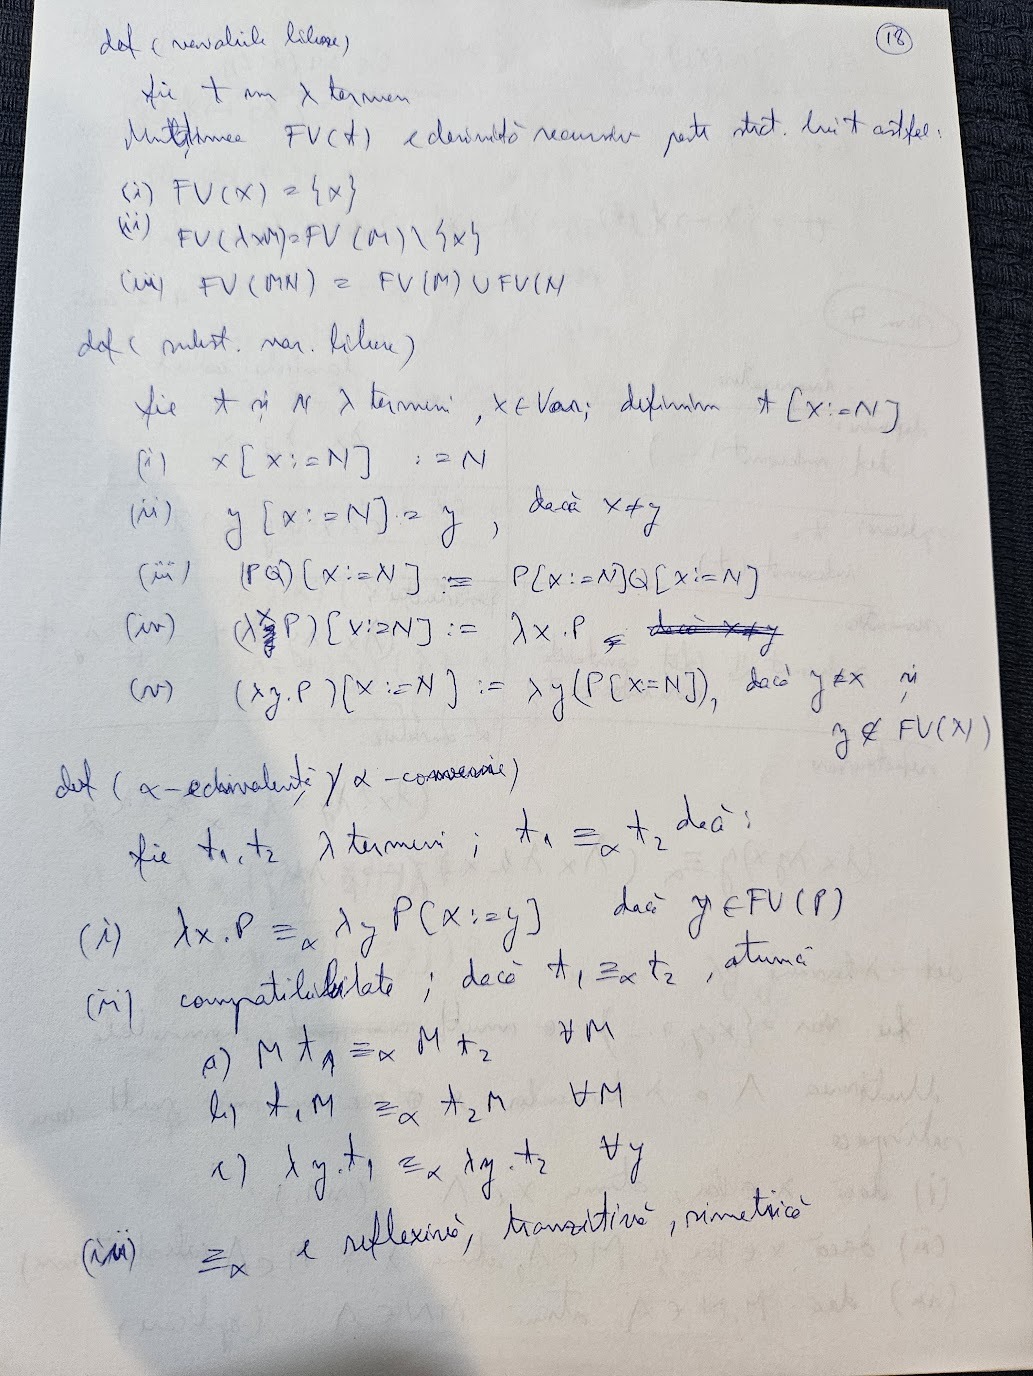 18
def (variabile libere)
fie t un λ termen
Mulțimea FV(t) e definită recursiv peste struct. lui t astfel:
(i) FV(x) = {x}
(ii) FV(λxM) = FV(M) \ {x}
(iii) FV(MN) = FV(M) ∪ FV(N
def ( subst. var. libere)
fie t și N λ termeni, x ∈ Var; definim t [x:=N]
(i) x[x:=N] := N
(ii) y [x:=N] = y , dacă x≠y
(iii) (PQ)[x:=N] := P[x:=N]Q[x:=N]
(iv) (λxP)[x:=N] := λx.P
(v) (λy.P)[x:=N] := λy(P[x=N]), dacă y≠x și
y ∉ FV(N)
def ( α-echivalență / α-conversie)
fie t1, t2 λ termeni ; t1 ≡α t2 dacă:
(i) λx.P ≡α λy P[x:=y] dacă y ∈ FV(P)
(ii) compatibilitate ; dacă t1 ≡α t2 , atunci
a) M t1 ≡α M t2 ∀M
b) t1M ≡α t2M ∀M
c) λy.t1 ≡α λy.t2 ∀y
(iii) ≡α e reflexivă, tranzitivă, simetrică